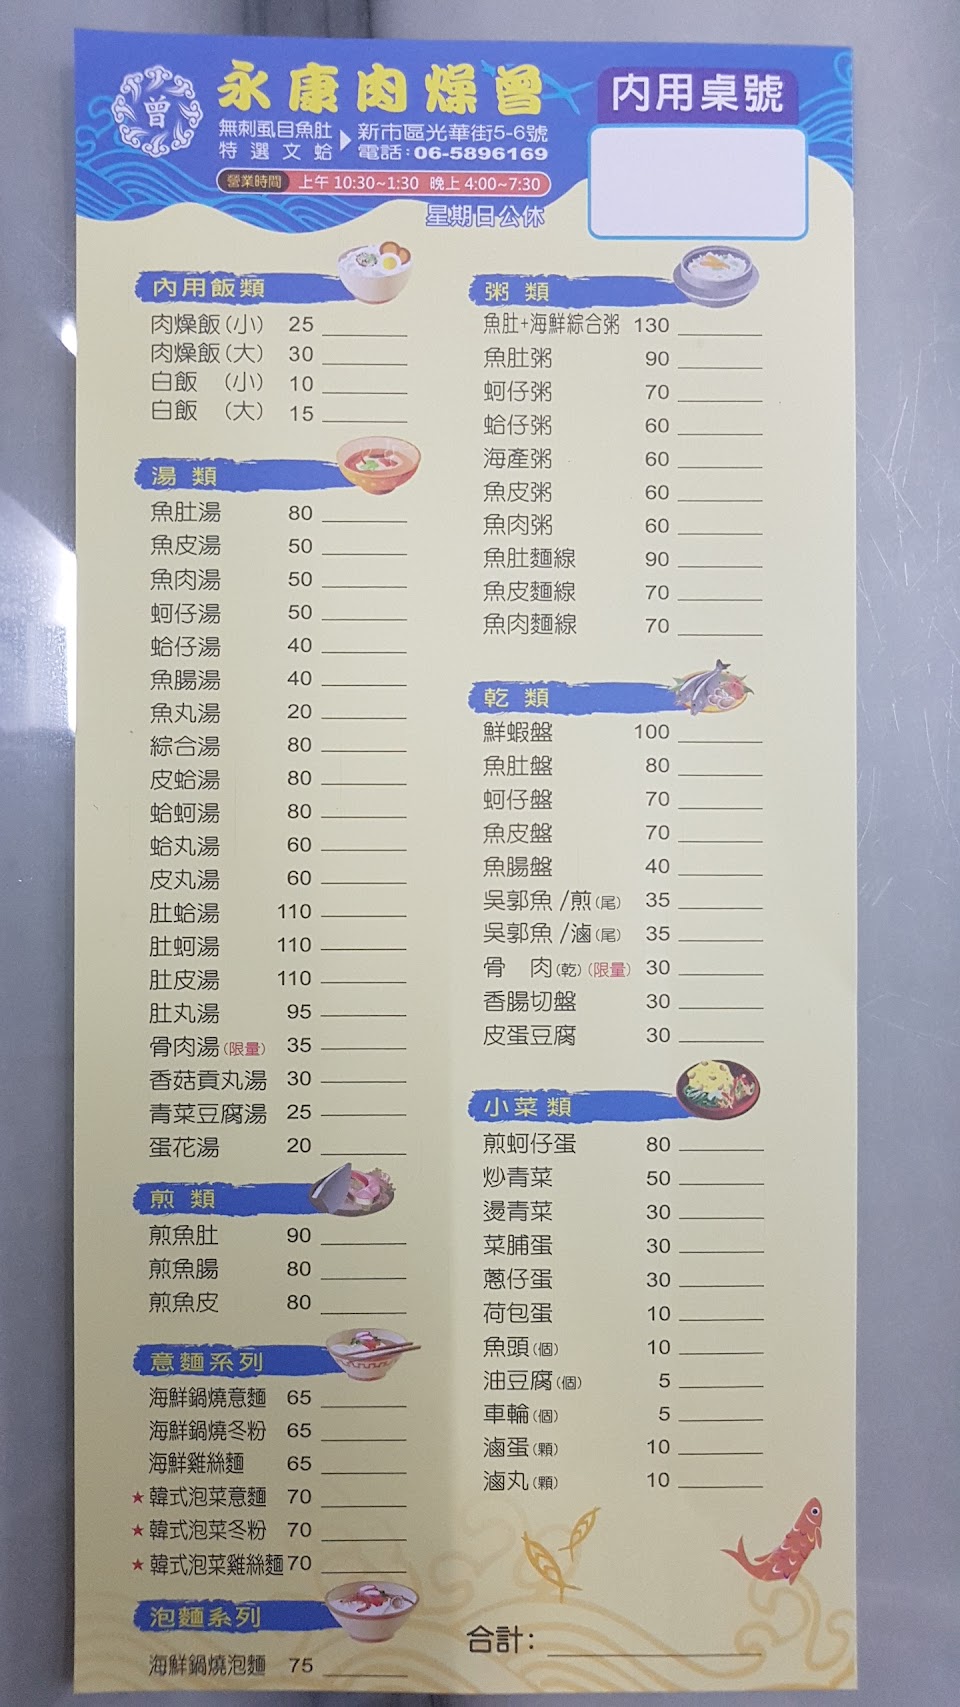 曾
永康肉燥曾
無刺虱目魚肚
特選文蛤
新市區光華街5-6號
電話:06-5896169
營業時間 上午 10:30~1:30 晚上 4:00~7:30
星期日公休
內用桌號
內用飯類
肉燥飯(小) 25
肉燥飯(大) 30
白飯 (小) 10
白飯 (大) 15
湯類
魚肚湯 80
魚皮湯 50
魚肉湯 50
蚵仔湯 50
蛤仔湯 40
魚腸湯 40
魚丸湯 20
綜合湯 80
皮蛤湯 80
蛤蚵湯 80
蛤丸湯 60
皮丸湯 60
肚蛤湯 110
肚蚵湯 110
肚皮湯 110
肚丸湯 95
骨肉湯(限量) 35
香菇貢丸湯 30
青菜豆腐湯 25
蛋花湯 20
煎類
煎魚肚 90
煎魚腸 80
煎魚皮 80
意麵系列
海鮮鍋燒意麵 65
海鮮鍋燒冬粉 65
海鮮雞絲麵 65
★韓式泡菜意麵 70
★韓式泡菜冬粉 70
★韓式泡菜雞絲麵 70
泡麵系列
海鮮鍋燒泡麵 75
粥類
魚肚+海鮮綜合粥 130
魚肚粥 90
蚵仔粥 70
蛤仔粥 60
海產粥 60
魚皮粥 60
魚肉粥 60
魚肚麵線 90
魚皮麵線 70
魚肉麵線 70
乾類
鮮蝦盤 100
魚肚盤 80
蚵仔盤 70
魚皮盤 70
魚腸盤 40
吳郭魚/煎(尾) 35
吳郭魚/滷(尾) 35
骨 肉(乾)(限量) 30
香腸切盤 30
皮蛋豆腐 30
小菜類
煎蚵仔蛋 80
炒青菜 50
燙青菜 30
菜脯蛋 30
蔥仔蛋 30
荷包蛋 10
魚頭(個) 10
油豆腐(個) 5
車輪(個) 5
滷蛋(顆) 10
滷丸(顆) 10
合計: